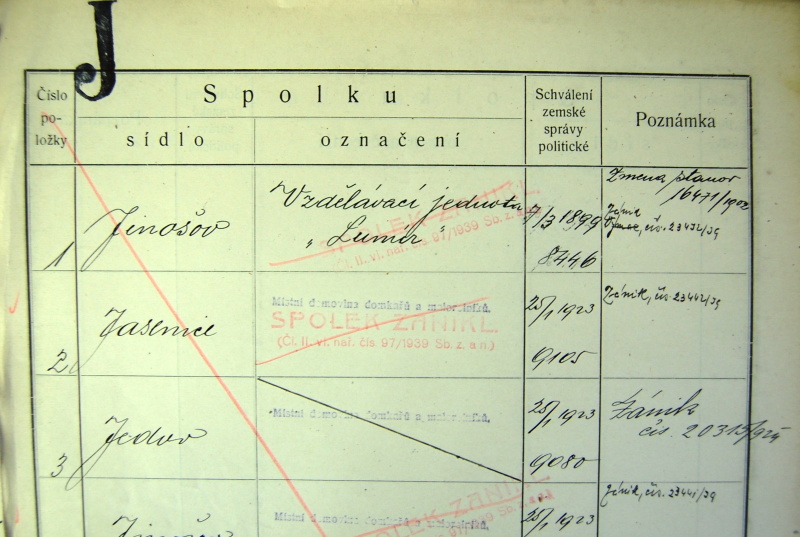 J
Číslo
po-
ložky
Spolku
sídlo
označení
Schválení
zemské
správy
politické
Poznámka
1
Jinošov
Vzdělávací jednota
„Lumír"
SPOLEK ZANIKL.
(Čl. II. vl. nař. čís. 97/1939 Sb. z. a n.)
7/3 1899
8446
Zmena stanov
16471/1902
Zánik
, čís. 23452/39
2
Jasenice
Místní domovina domkařů a malorolníků.
SPOLEK ZANIKL.
(Čl. II. vl. nař. čís. 97/1939 Sb. z. a n.)
25/1 1923
9105
Zánik, čís. 23442/39
3
Jedov
Místní domovina domkařů a malorolníků.
25/1 1923
9080
Zánik
čís. 20315/924
Místní domovina domkařů a malorolníků.
SPOLEK ZANIKL
25/1 1923
Zánik, čís. 23441/39